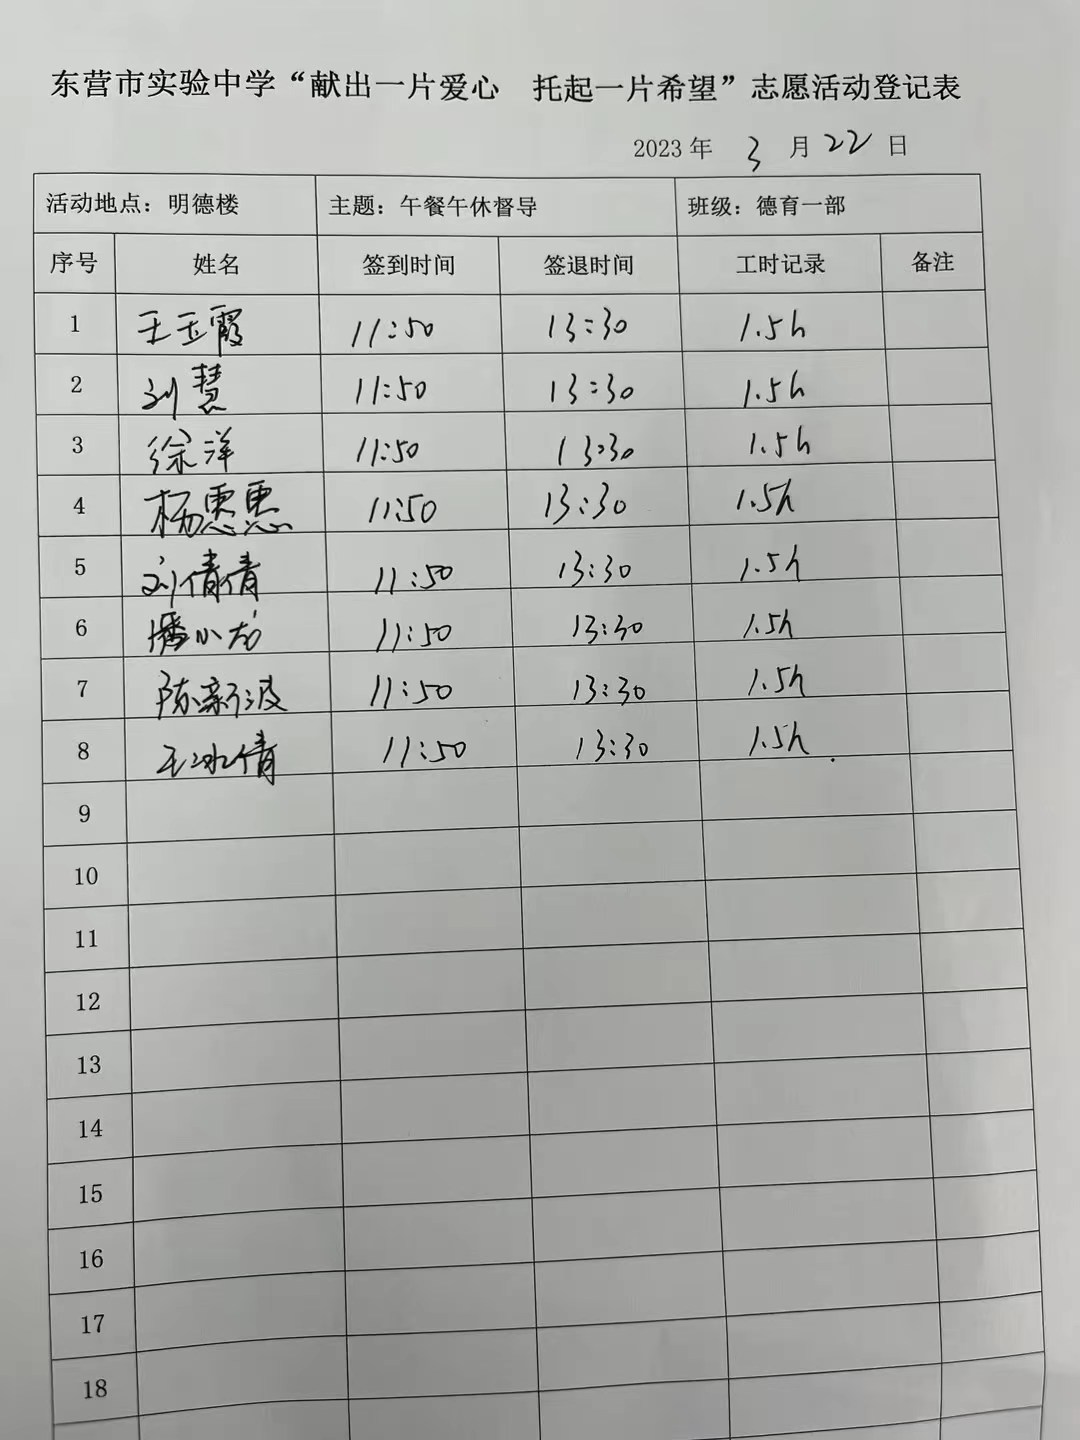 东营市实验中学“献出一片爱心 托起一片希望”志愿活动登记表
2023年 3 月 22 日
活动地点：明德楼 主题：午餐午休督导 班级：德育一部
序号 姓名 签到时间 签退时间 工时记录 备注
1 王玉霞 11:50 13:30 1.5h
2 刘慧 11:50 13:30 1.5h
3 徐洋 11:50 13:30 1.5h
4 杨惠惠 11:50 13:30 1.5h
5 刘倩倩 11:50 13:30 1.5h
6 潘小龙 11:50 13:30 1.5h
7 陈新波 11:50 13:30 1.5h
8 王冰倩 11:50 13:30 1.5h
9
10
11
12
13
14
15
16
17
18